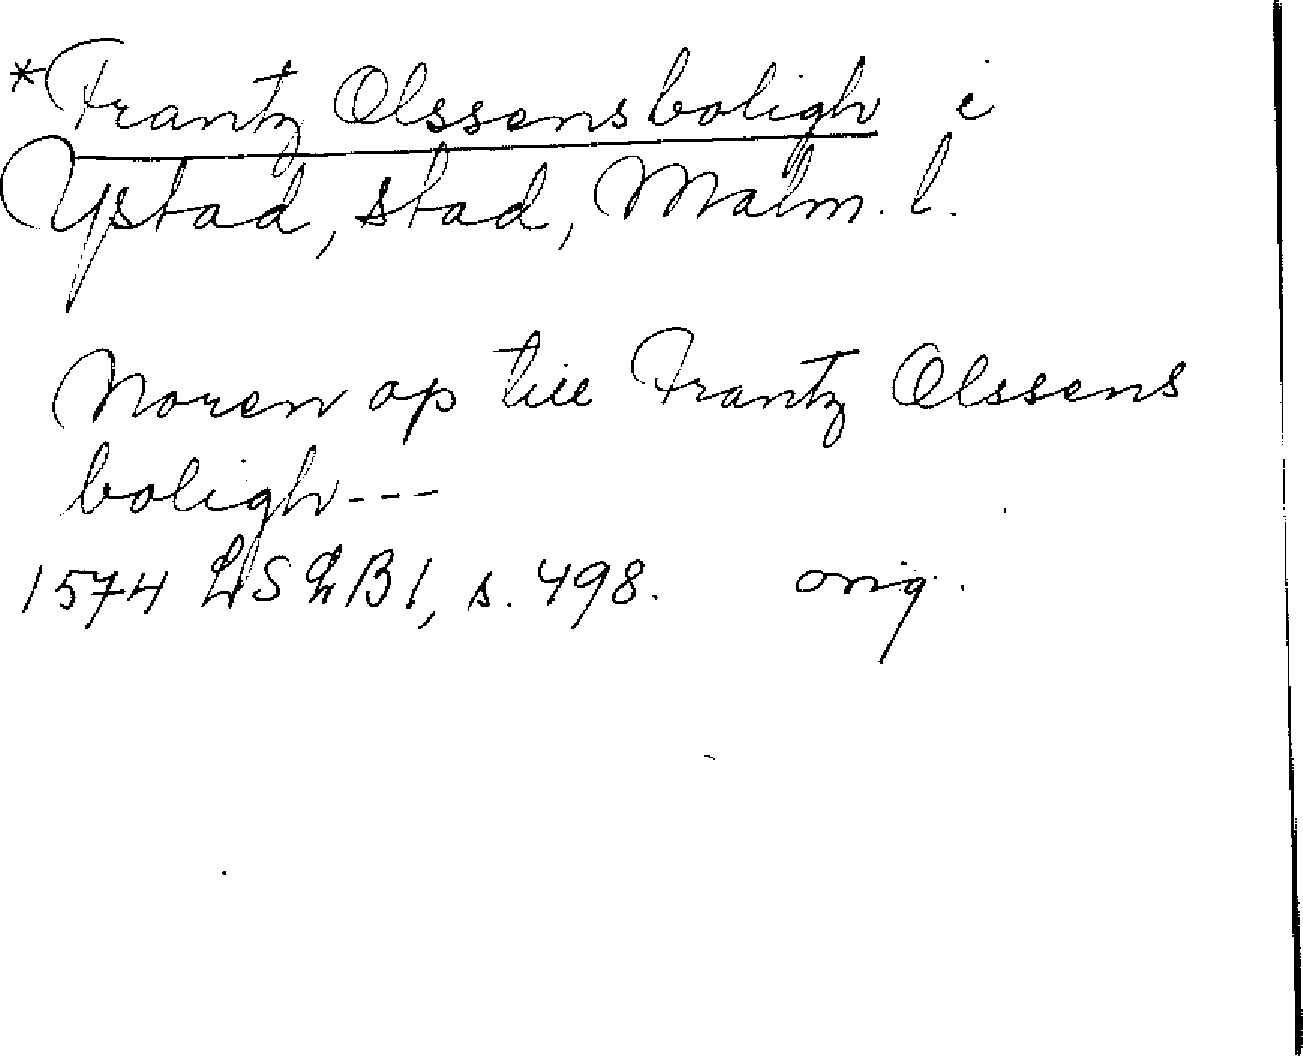 *Frantz Olssens boligh i
Ystad, stad, Malm. l.
Noren op till Frantz Olssens
boligh---
1574 LSLB 1, s. 498. orig.